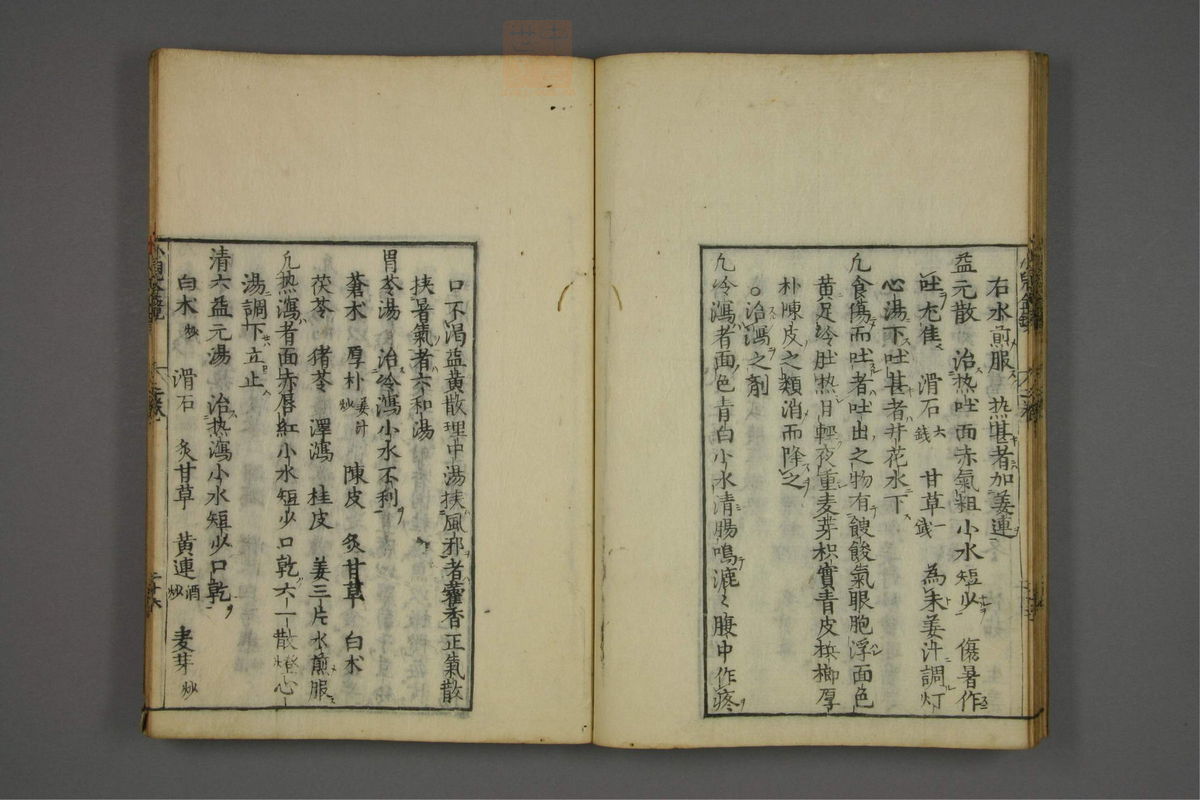 右水煎服 热甚者加姜連
益元散 治热吐面赤氣粗小水短少 傷暑作
吐尤佳 滑石六錢 甘草一錢 為末姜汁調灯
心湯下吐甚者井花水下
凢食傷而吐者吐出之物有餿酸氣眼胞浮面色
黄足冷肚热日輕夜重麦芽枳實青皮梹榔厚
朴陳皮之類消而降之
○治瀉之剤
凢冷瀉者面色青白小水清腸鳴漉〻腹中作疼
口不渴益黄散理中湯挟風邪者藿香正氣散
挟暑氣者六和湯
胃苓湯 治冷瀉小水不利
蒼朮 厚朴姜汁炒 陳皮 炙甘草 白朮
茯苓 猪苓 澤瀉 桂皮 姜三片水煎服
凢热瀉者面赤唇紅小水短少口乾六一散燈心
湯調下立止
清六益元湯 治热瀉小水短少口乾
白朮炒 滑石 炙甘草 黄連酒炒 麦芽炒